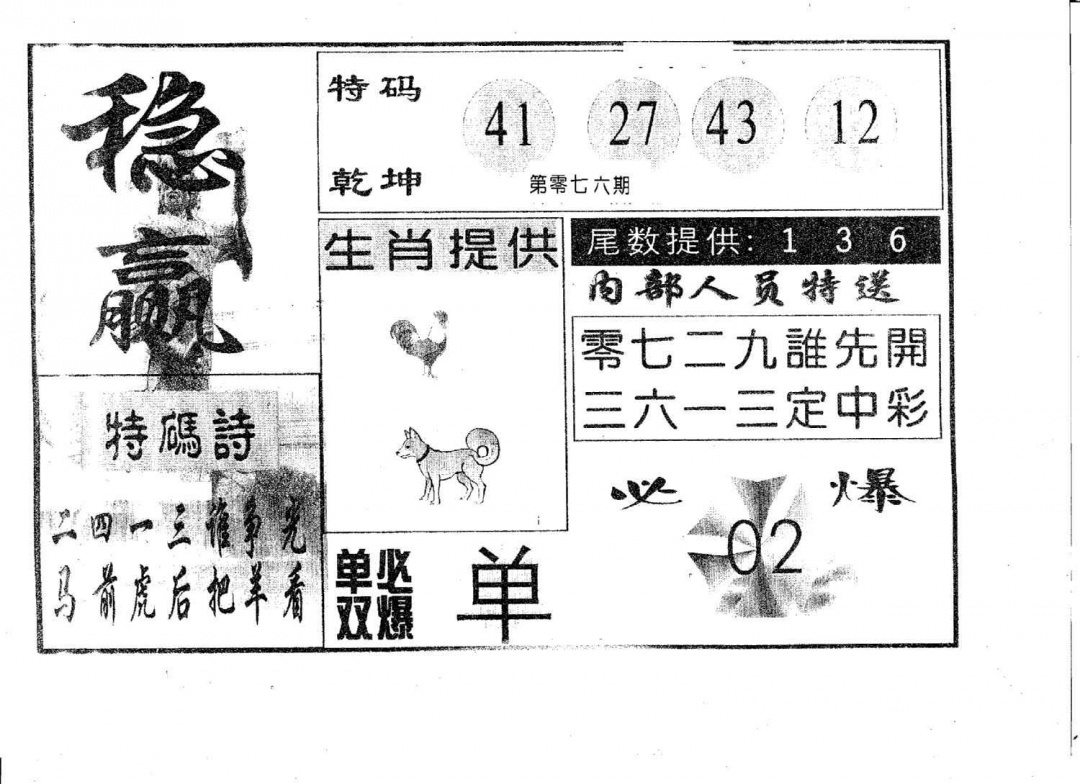 稳
赢
特码
41 27 43 12
乾坤
第零七六期
生肖提供
尾数提供: 1 3 6
内部人员特送
零七二九誰先開
三六一三定中彩
特碼詩
二四一三谁争光
马前虎后把羊看
必爆
02
单必
双爆
单